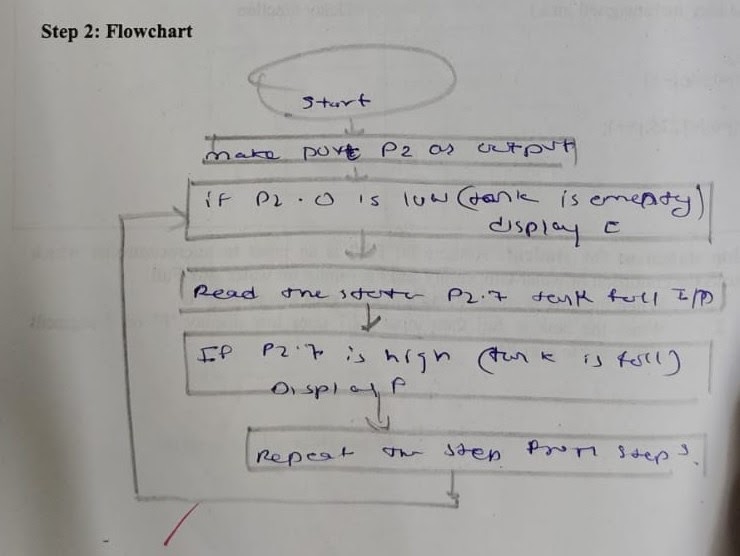 Step 2: Flowchart
Start
make port P2 as output
if P2.0 is low (tank is emepty)
display E
Read the state P2.7 tank full I/P
If P2.7 is high (tank is full)
Display F
Repeat the step from step 3.